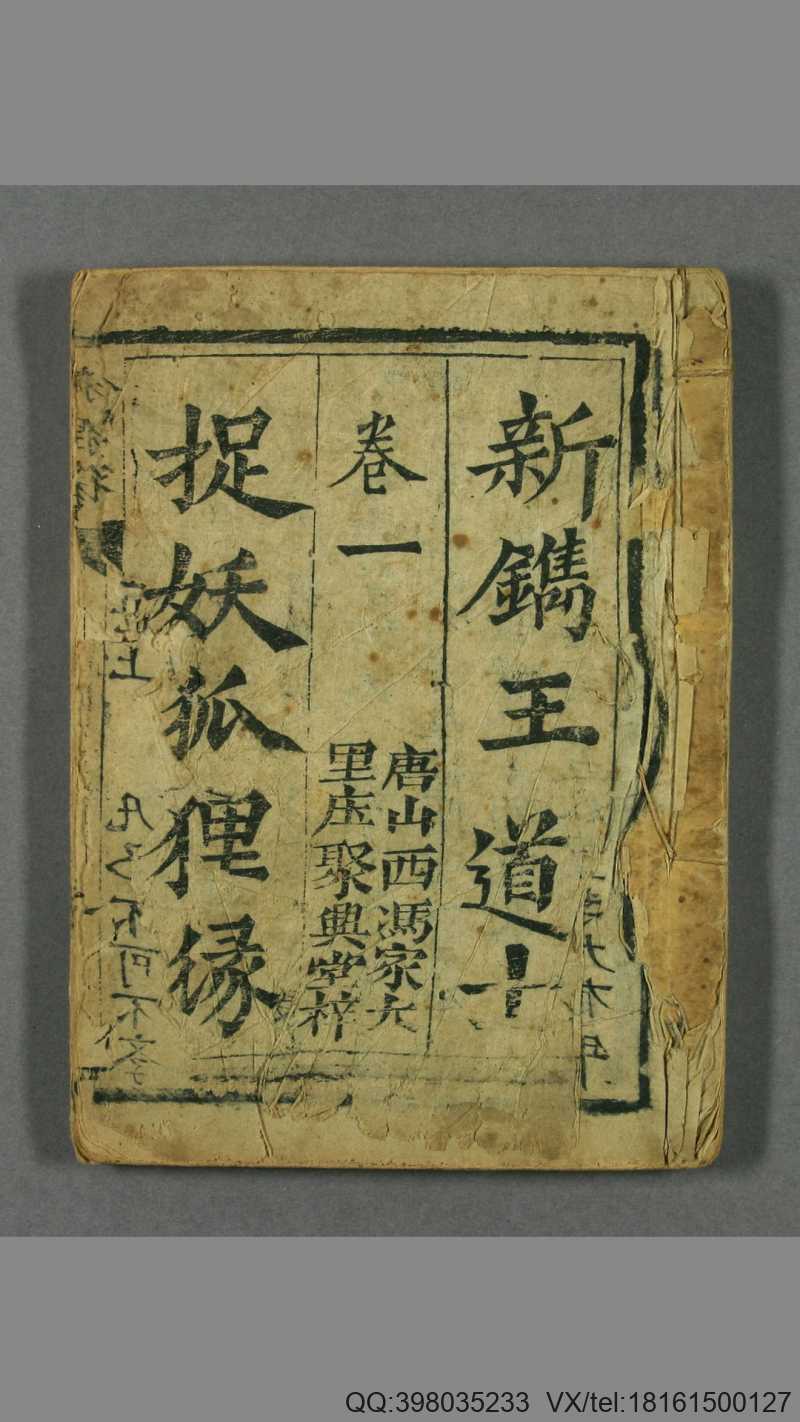 新鐫王道士
卷一
唐山西馮家大
里庄聚興堂梓
捉妖狐狸緣
QQ:398035233 VX/tel:18161500127